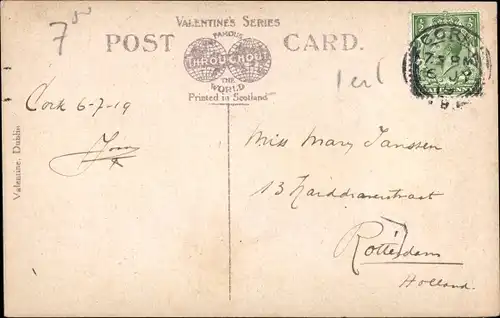 7⁵⁰
VALENTINE'S SERIES
POST CARD.
FAMOUS
THROUGHOUT
THE
WORLD
Printed in Scotland
1erl
CORK
Cork 6-7-19
Valentine, Dublin
Miss Mary Janssen
13 Harddraverstraat
Rotterdam
Holland.